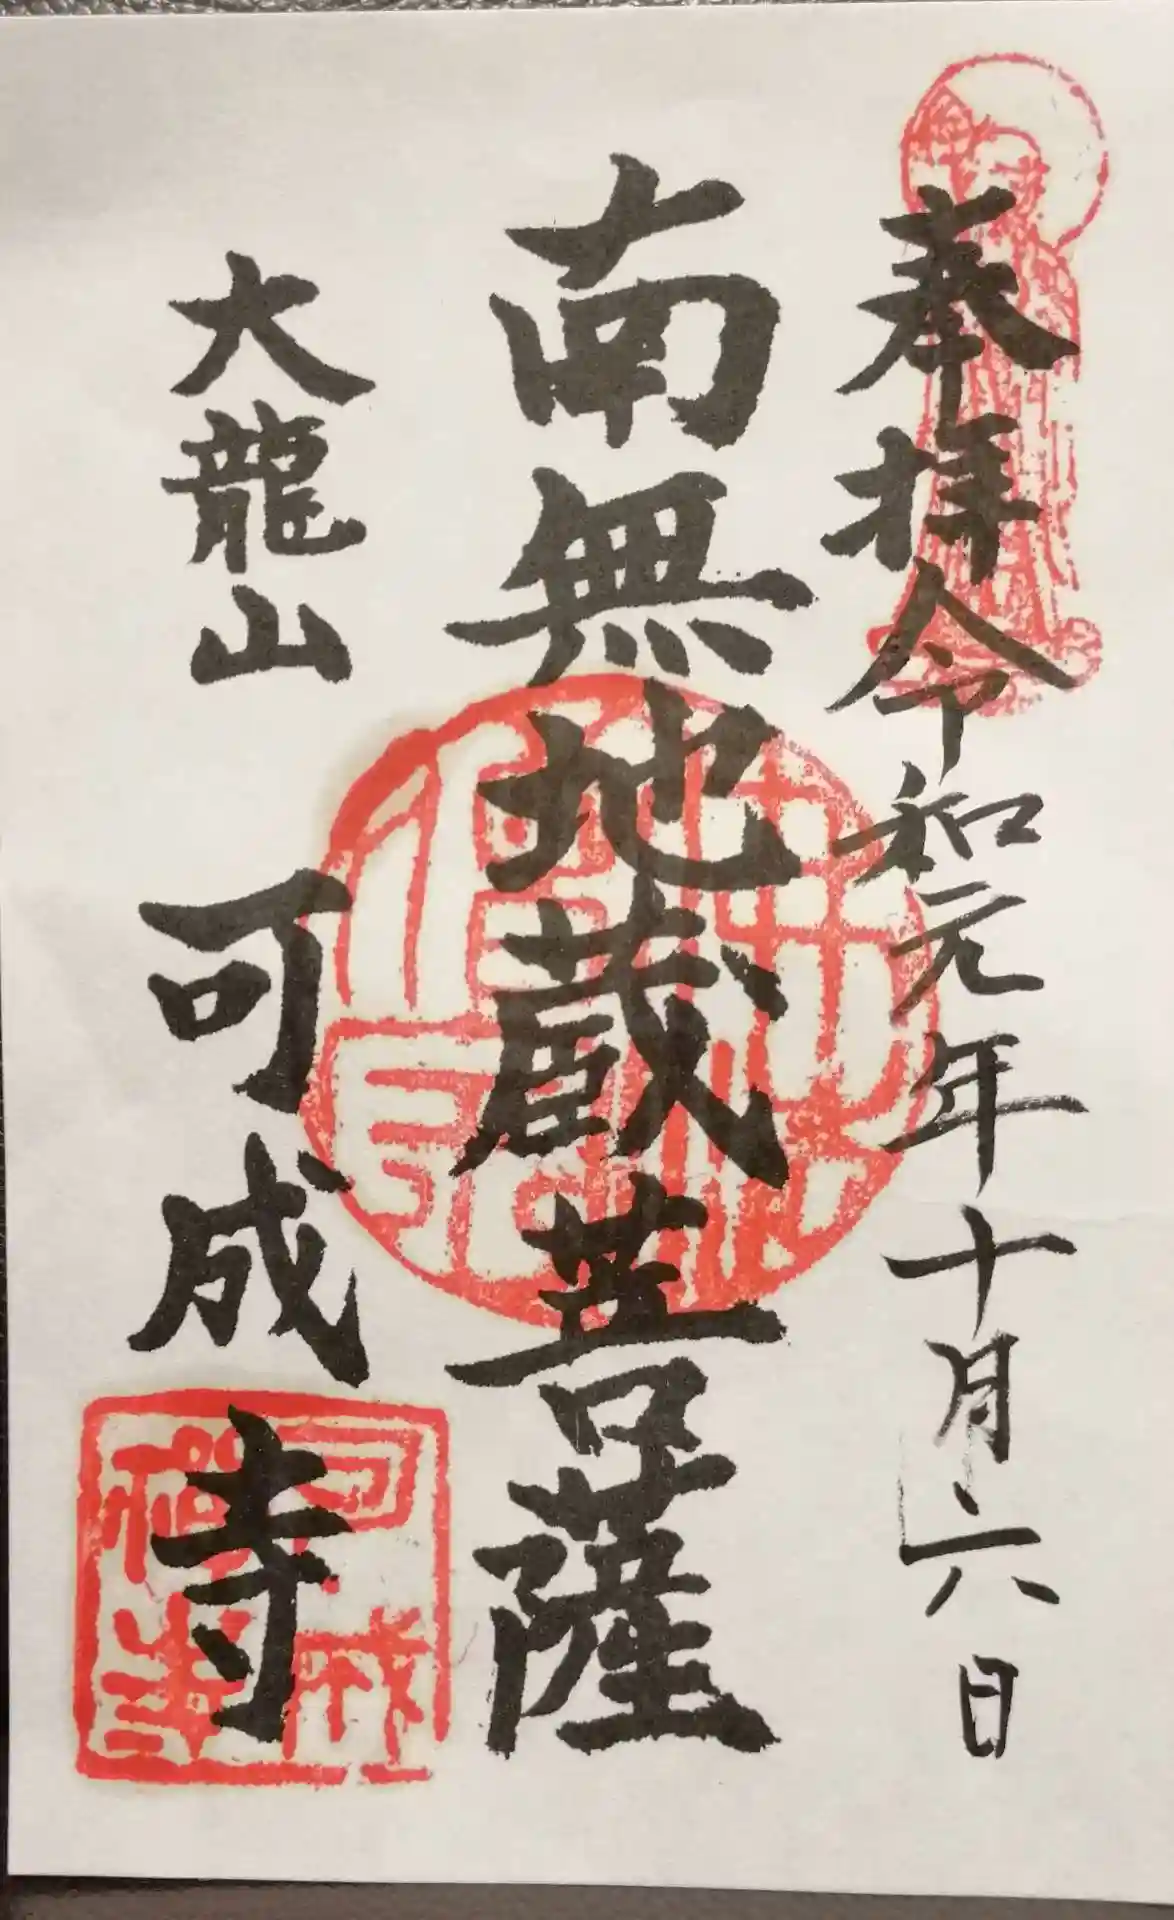 奉拝令和元年十月六日
南無地蔵菩薩
大龍山
可成寺